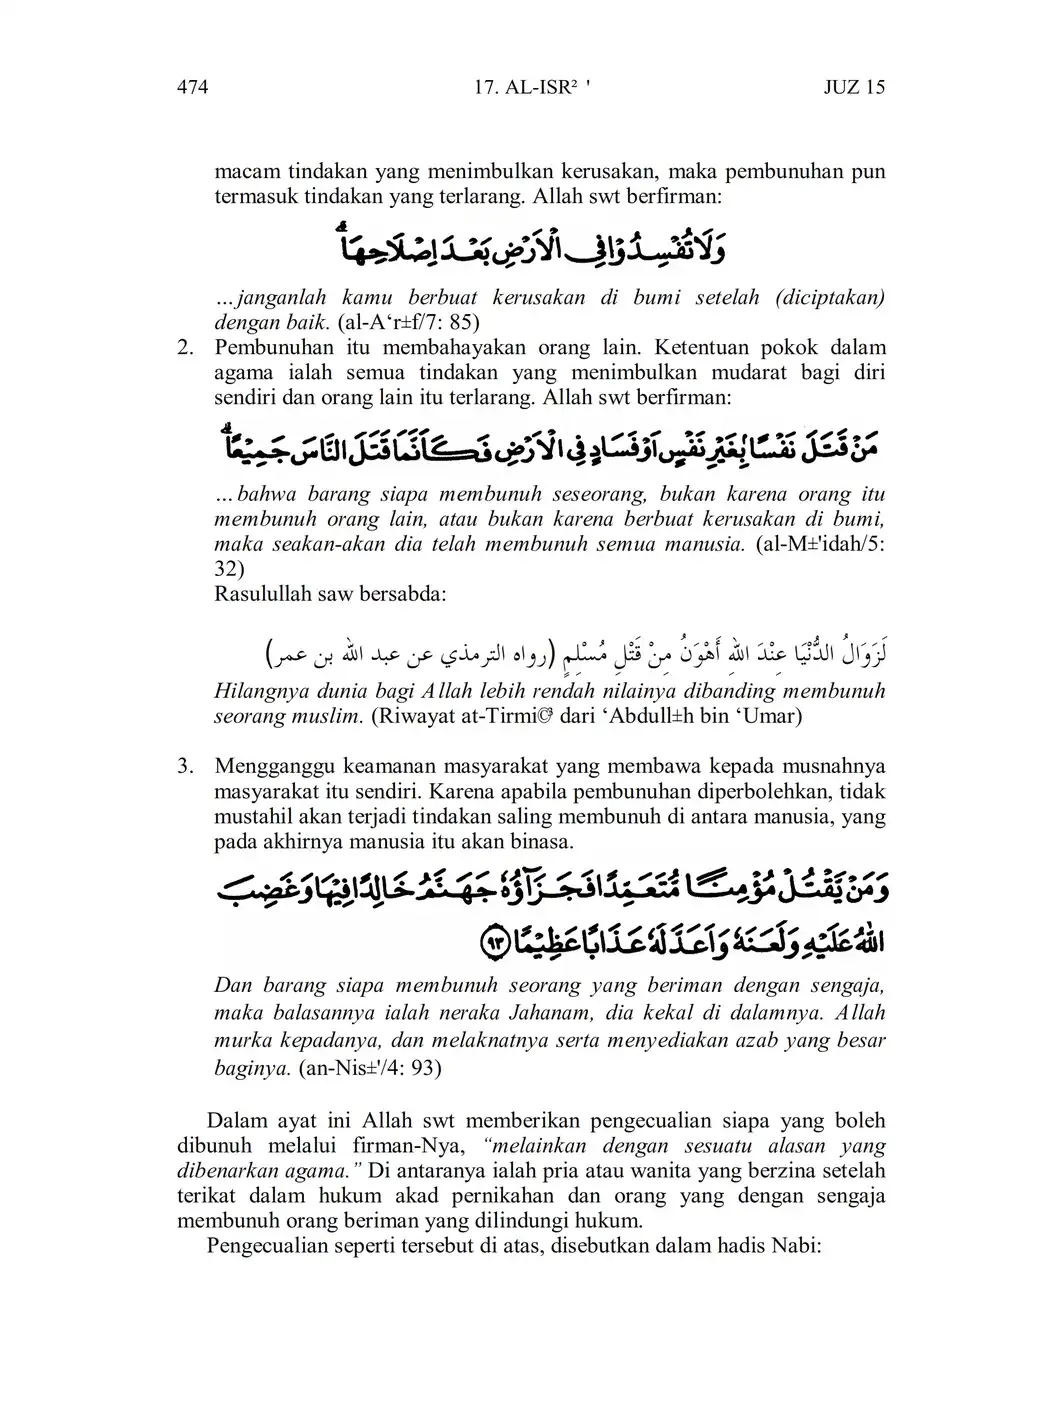 474 17. AL-ISR² ' JUZ 15
macam tindakan yang menimbulkan kerusakan, maka pembunuhan pun
termasuk tindakan yang terlarang. Allah swt berfirman:
وَلَا تُفْسِدُوْا فِى الْاَرْضِ بَعْدَ اِصْلَاحِهَاۗ
…janganlah kamu berbuat kerusakan di bumi setelah (diciptakan)
dengan baik. (al-A‘r±f/7: 85)
2. Pembunuhan itu membahayakan orang lain. Ketentuan pokok dalam
agama ialah semua tindakan yang menimbulkan mudarat bagi diri
sendiri dan orang lain itu terlarang. Allah swt berfirman:
مَنْ قَتَلَ نَفْسًاۢ بِغَيْرِ نَفْسٍ اَوْ فَسَادٍ فِى الْاَرْضِ فَكَاَنَّمَا قَتَلَ النَّاسَ جَمِيْعًاۗ
…bahwa barang siapa membunuh seseorang, bukan karena orang itu
membunuh orang lain, atau bukan karena berbuat kerusakan di bumi,
maka seakan-akan dia telah membunuh semua manusia. (al-M±'idah/5:
32)
Rasulullah saw bersabda:
لَزَوَالُ الدُّنْيَا عِنْدَ اللهِ أَهْوَنُ مِنْ قَتْلِ مُسْلِمٍ (رواه الترمذي عن عبد الله بن عمر)
Hilangnya dunia bagi Allah lebih rendah nilainya dibanding membunuh
seorang muslim. (Riwayat at-Tirmi©³ dari ‘Abdull±h bin ‘Umar)
3. Mengganggu keamanan masyarakat yang membawa kepada musnahnya
masyarakat itu sendiri. Karena apabila pembunuhan diperbolehkan, tidak
mustahil akan terjadi tindakan saling membunuh di antara manusia, yang
pada akhirnya manusia itu akan binasa.
وَمَنْ يَّقْتُلْ مُؤْمِنًا مُّتَعَمِّدًا فَجَزَاۤؤُهٗ جَهَنَّمُ خَالِدًا فِيْهَا وَغَضِبَ
اللّٰهُ عَلَيْهِ وَلَعَنَهٗ وَاَعَدَّ لَهٗ عَذَابًا عَظِيْمًا ٩٣
Dan barang siapa membunuh seorang yang beriman dengan sengaja,
maka balasannya ialah neraka Jahanam, dia kekal di dalamnya. Allah
murka kepadanya, dan melaknatnya serta menyediakan azab yang besar
baginya. (an-Nis±'/4: 93)
Dalam ayat ini Allah swt memberikan pengecualian siapa yang boleh
dibunuh melalui firman-Nya, “melainkan dengan sesuatu alasan yang
dibenarkan agama.” Di antaranya ialah pria atau wanita yang berzina setelah
terikat dalam hukum akad pernikahan dan orang yang dengan sengaja
membunuh orang beriman yang dilindungi hukum.
Pengecualian seperti tersebut di atas, disebutkan dalam hadis Nabi: